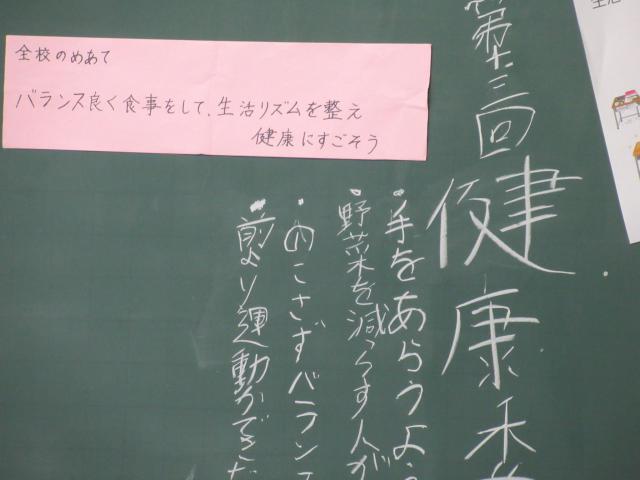 全校のめあて
バランス良く食事をして、生活リズムを整え
健康にすごそう
第十三回
健康
・手をあらうよう
・野菜を減らす人が
・のこさずバランス
・前より運動ができた